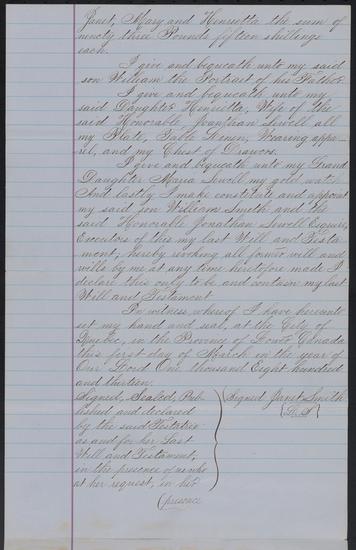 Janet, Mary and Henrietta the sum of
ninety three Pounds fifteen shillings
each.
I give and bequeath unto my said
son William the Portrait of his Father.
I give and bequeath unto my
said Daughter Henrietta, Wife of the
said Honorable Jonathan Sewell all
my Plate, Table Linen, Wearing appa-
rel, and my Chest of Drawers.
I give and bequeath unto my Grand
Daughter Maria Sewell my gold watch
And lastly I make constitute and appoint
my said son William Smith and the
said Honorable Jonathan Sewell Esquire,
Executors of this my last Will and Testa
ment, hereby revoking all former will and
wills by me at any time heretofore made I
declare this only to be and contain my last
Will and Testament
In witness whereof I have hereunto
set my hand and seal, at the City of
Quebec, in the Province of Lower Canada
this first day of March in the year of
Our Lord One thousand Eight hundred
and thirteen.
Signed, Sealed, Pub
lished and declared
by the said Testatrix
as and for her Last
Will and Testament,
in the presence of us who
at her request, in her
Signed Janet Smith
(L.S)
(presence